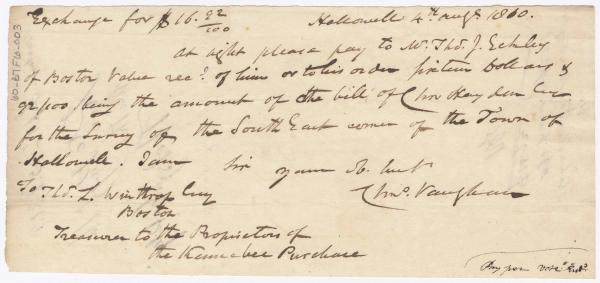 Exchange for $16 92/100 Hallowell 4th augt 1810.
at sight please pay to Mr. Tho. J. Eckley
of Boston Value recd. of him or to his order sixteen Dollars &
92/100 being the amount of the bill of Chs Hayden Esq
for the Survey of the South East corner of the Town of
Hallowell. I am Sir your Ob. Sert
To Tho. L. Winthrop Esq Chas. Vaughan
Boston
Treasurer to the Proprietors of
the Kennebec Purchase
Pay
60-67 F16-003